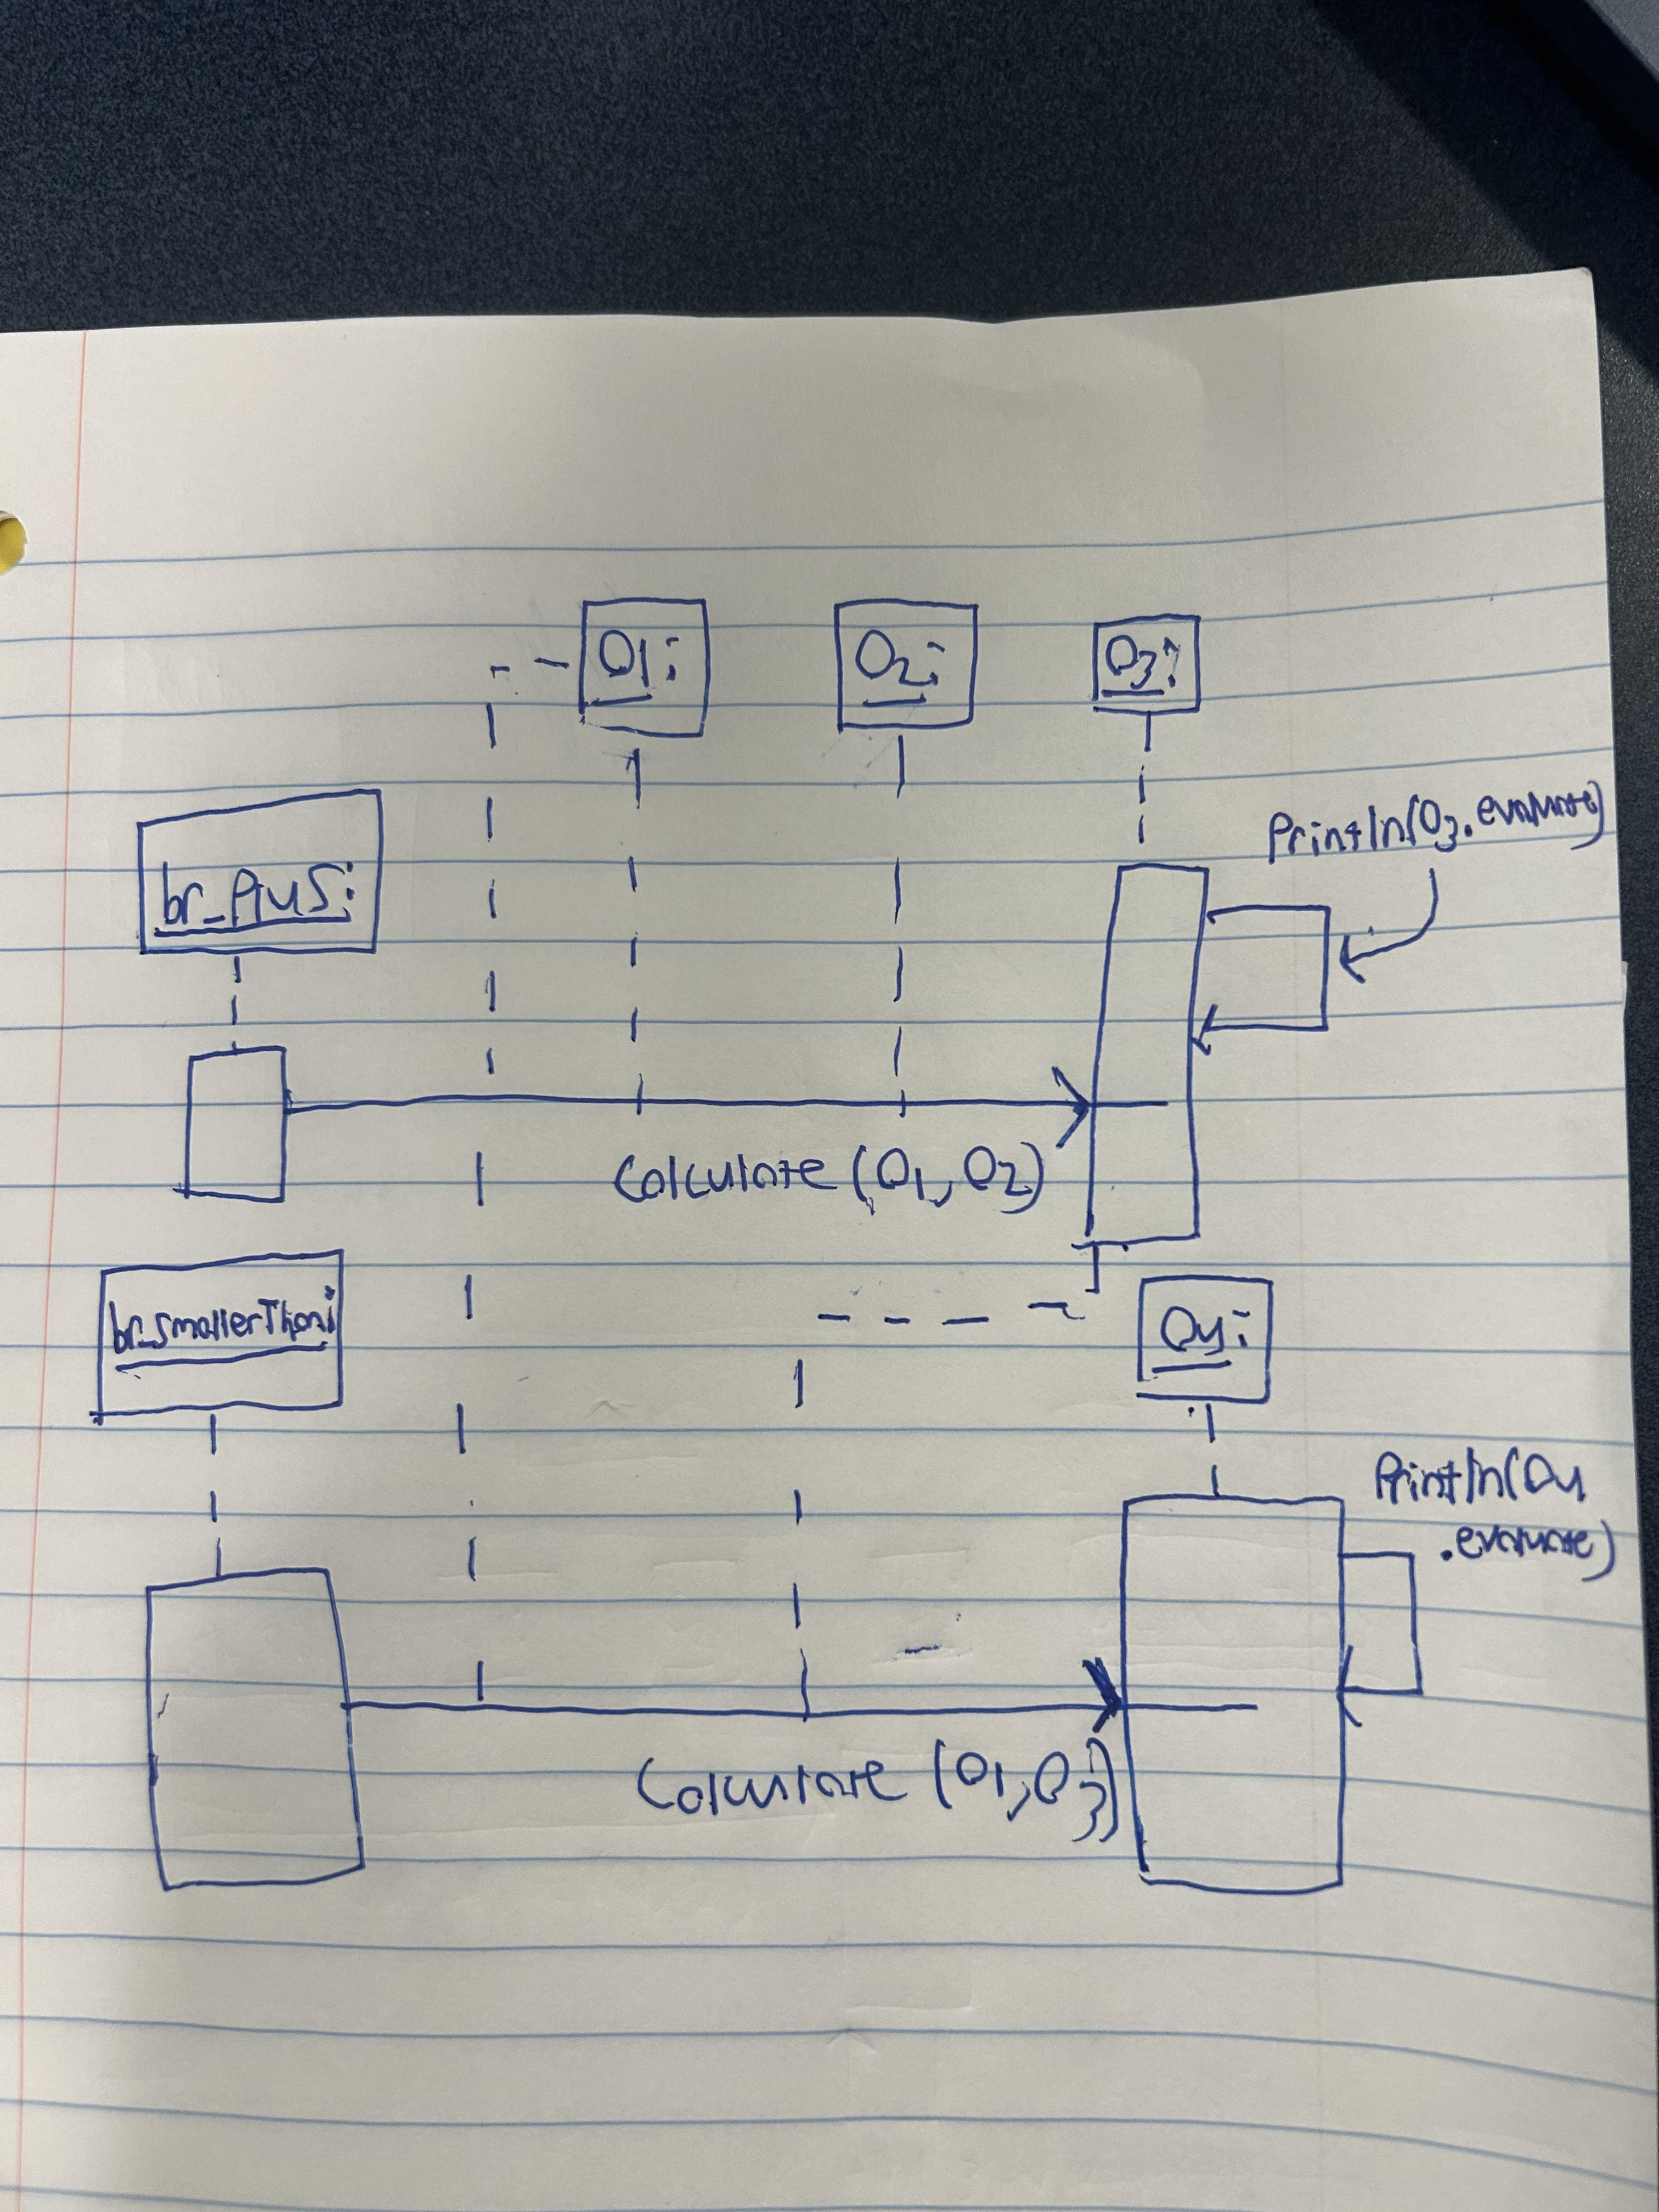 O1:
O2:
O3:
Println(O3.evaluate)
br_Plus:
Calculate (O1, O2)
br_smallerThan:
O4:
Println(O4
.evaluate)
Calculate (O1, O3)